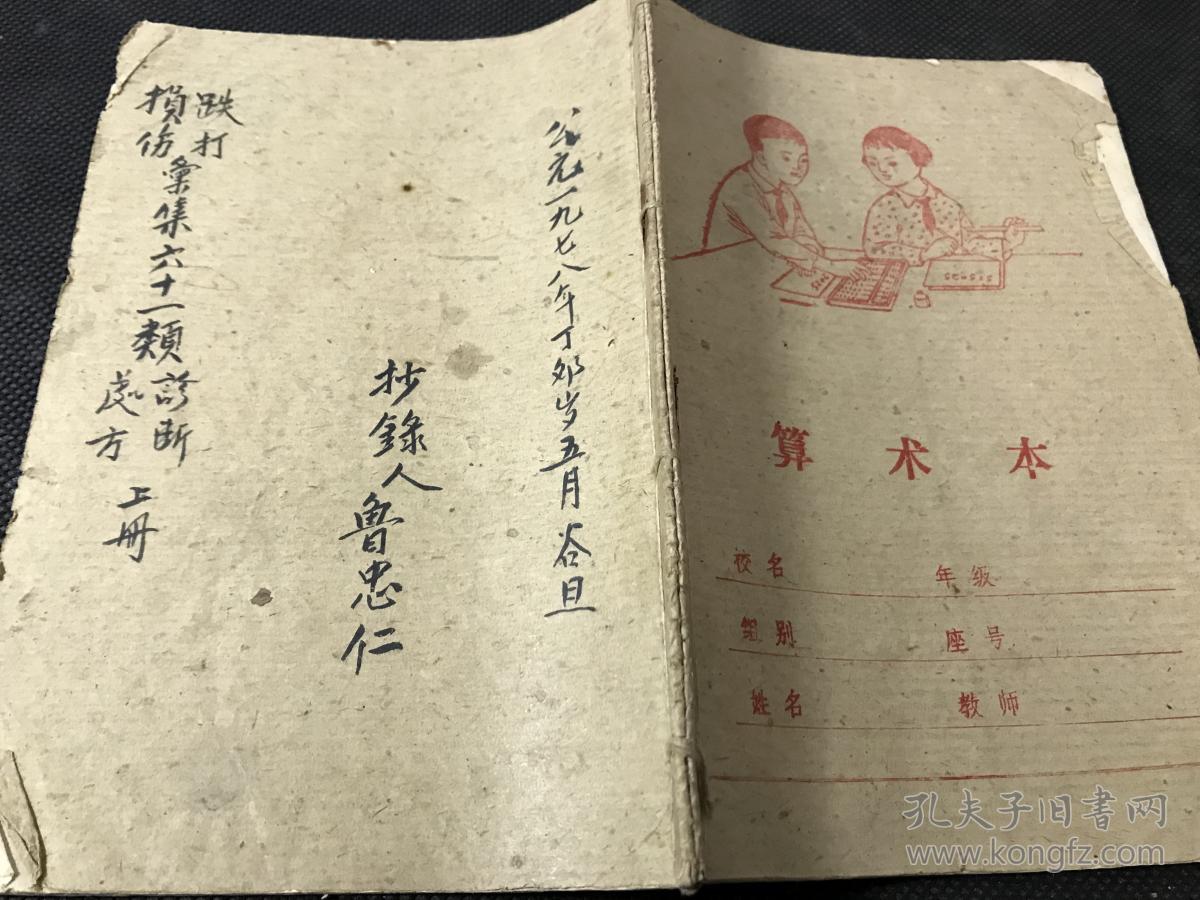 公元一九七八年丁夘岁五月谷旦
抄錄人魯忠仁
跌打
損伤
彙集六十一類
診断
處方
上冊
算术本
校名 年级
组别 座号
姓名 教师
孔夫子旧書网
www.kongfz.com